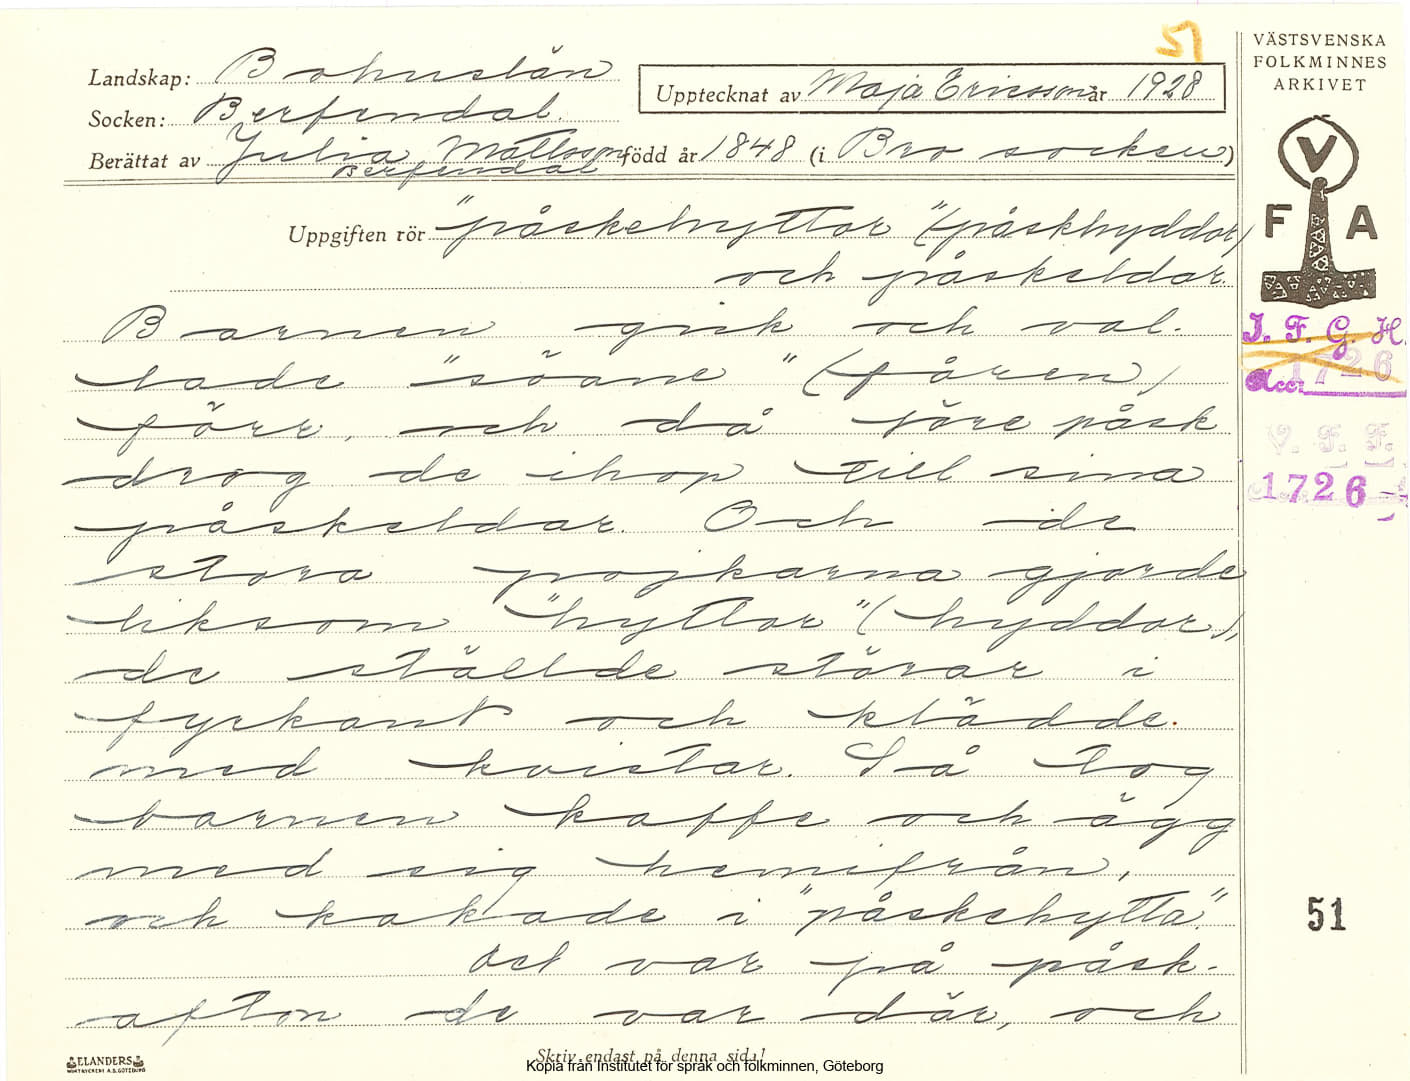 51
VÄSTSVENSKA
FOLKMINNES
ARKIVET
Landskap: Bohuslän
Upptecknat av Maja Ericsson år 1928
Socken: Berfendal.
Berättat av Julia Mattsson född år 1848 (i Bro socken)
Berfendal
V
F A
Uppgiften rör "påskehyttor" (påskhyddor)
och påskeldar.
Barnen gick och val-
lade "söane" (fåren)
förr, och då före påsk
drog de ihop till sina
påskeldar. Och de
stora pojkarna gjorde
liksom "hyttor" (hyddor),
de ställde störar i
fyrkant och klädde
med kvistar. Så tog
barnen kaffe och ägg
med sig hemifrån,
och kokade i "påskehytta".
Det var på påsk-
afton de var där, och
I. F. G. H.
1726
Acc.
V. F. F.
1726
51
Skriv endast på denna sida!
ELANDERS
BOKTRYCKERI A.B. GÖTEBORG
Kopia från Institutet för språk och folkminnen, Göteborg